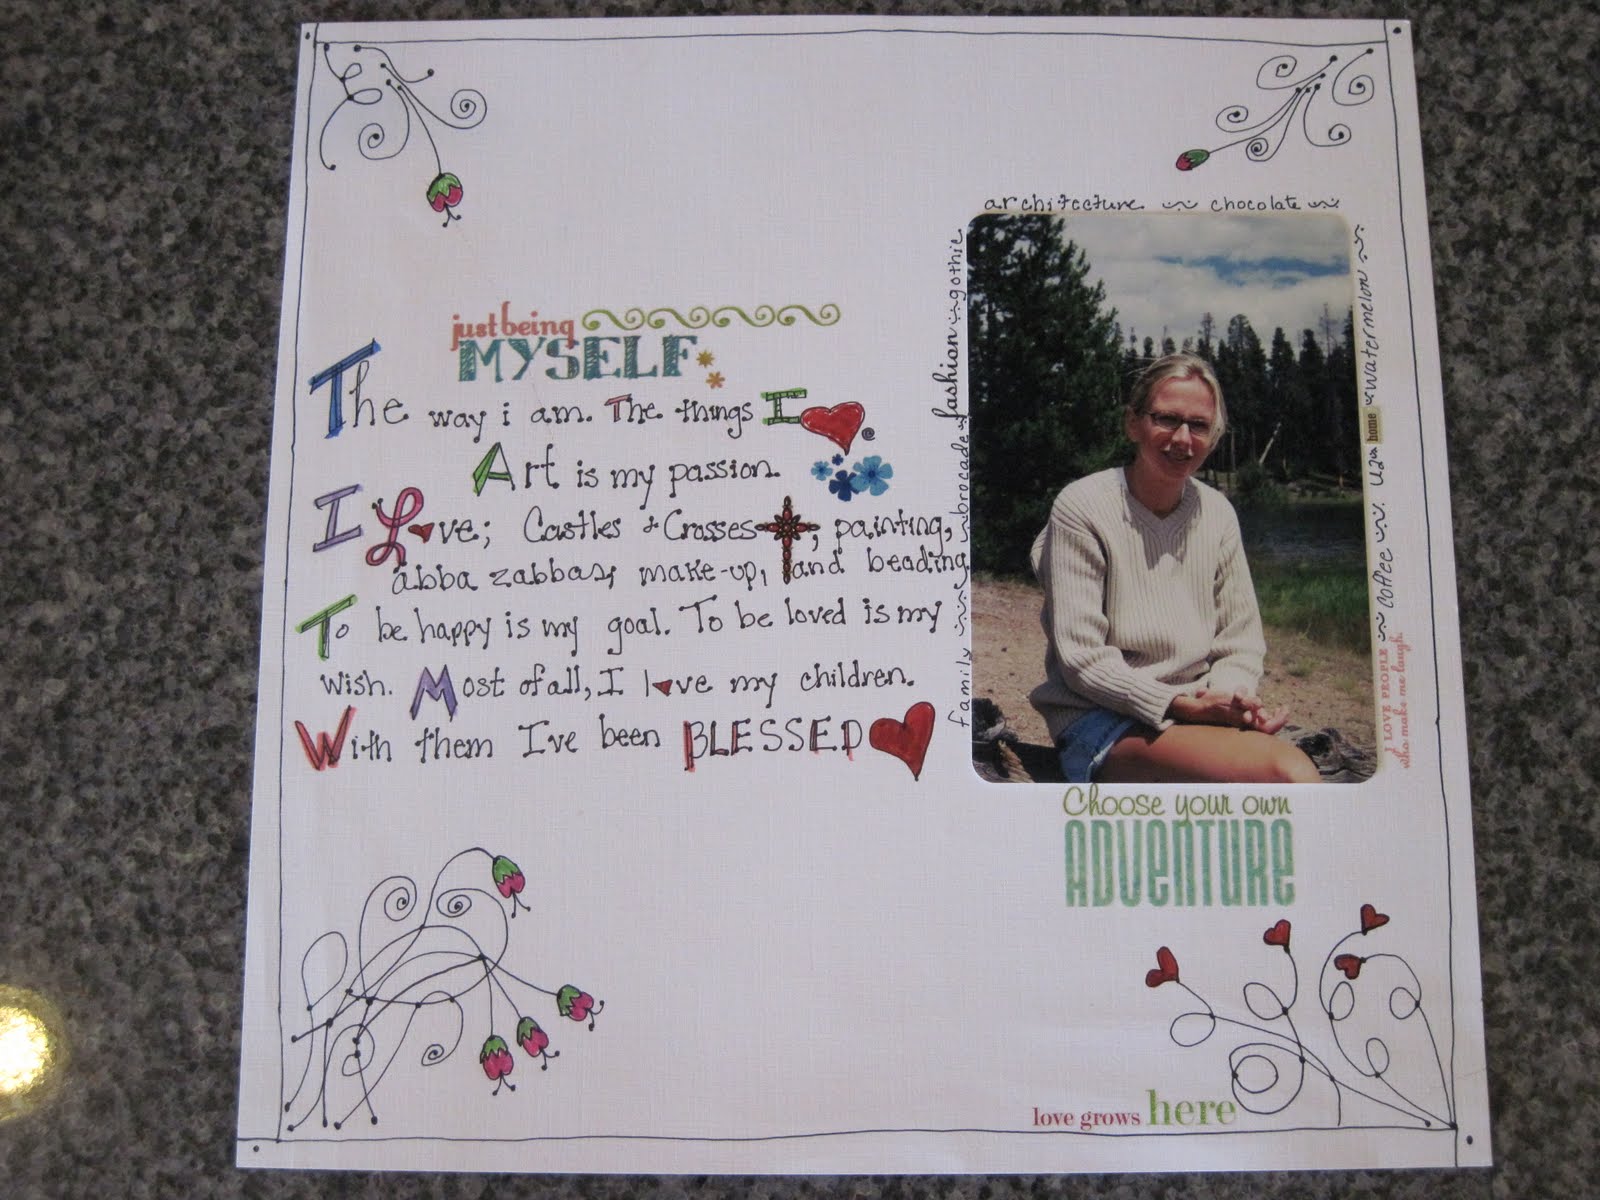 just being
MYSELF
The way i am. The things I
Art is my passion.
I Love; Castles & Crosses, painting,
abba zabbas, make-up, and beading
To be happy is my goal. To be loved is my
wish. Most of all, I love my children.
With them I've been BLESSED
architecture chocolate
family brocade fashion gothic
watermelon
home
coffee
I LOVE PEOPLE
who make me laugh.
Choose your own
ADVENTURE
love grows here